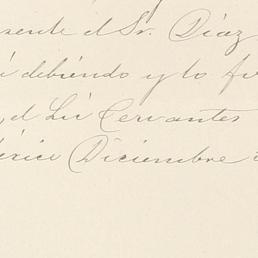 sente el Sr. Díaz
debiendo y lo fir
el Lic Cervantes
éxico Diciembre